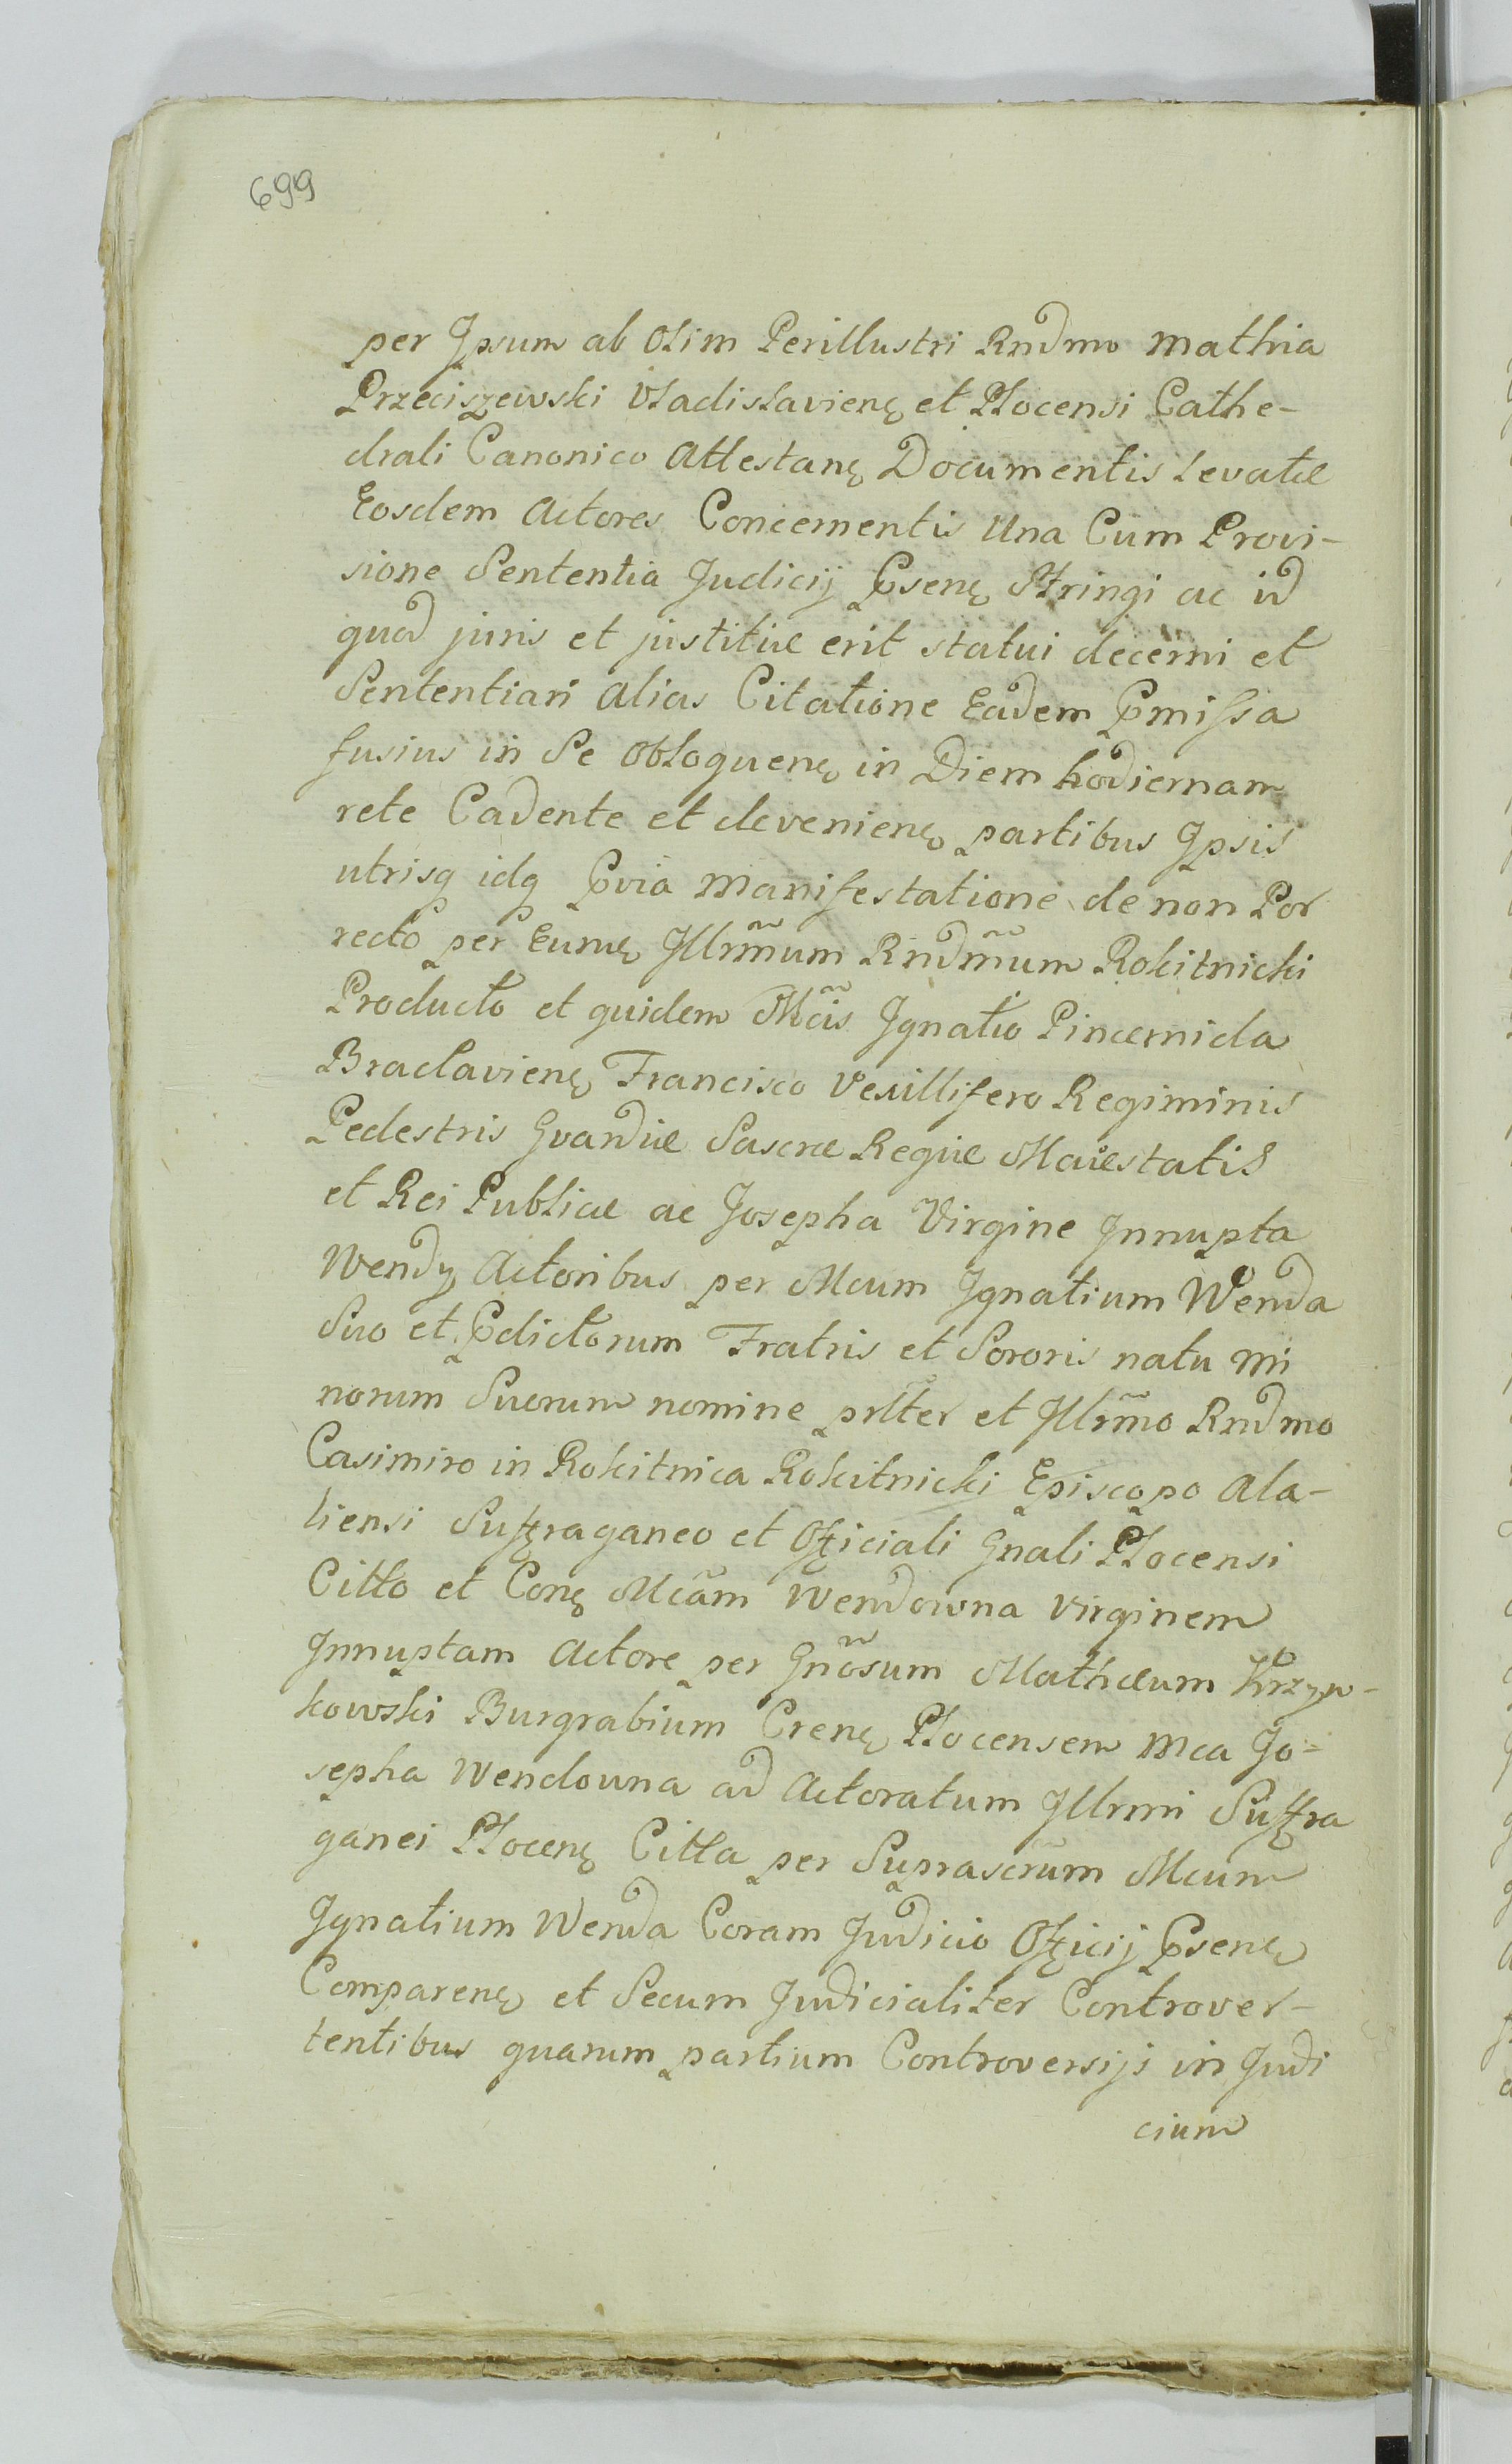 699
per Jpsum ab Olim Perillustri Rndmo Mathia
Przeciszewski Vladislavienę et Plocensi Cathe-
drali Canonico Attestanę Documentis Levatæ
Eosdem Actores Concernentis Una Cum Provi-
sione Sententia Judicij Psenę Stringi ac id
quod juris et justitiæ erit statui decerni et
Sententiari alias Citatione Eadem Pmissa
fusius in Se Obloquenę in Diem hodiernam
rete Cadente et devenienę partibus Jpsis
utrisq idq Pvia Manifestatione de non Por
recto per Eumę Jllrm̃um Rndm̃um Rokitnicki
Producto et quidem Mc̃is Jgnatio Pincernida
Braclavienę Francisco Vexillifero Regiminis
Pedestris Gvardiæ Sascræ Regiæ Maiestatis
et Rei Publicæ ac Josepha Virgine Jnnupta
Wendy Actoribus per Mcum Jgnatium Wenda
Suo et Pdictorum Fratris et Sororis natu Mi
norum Suorum nomine prlter et Jllrm̃o Rndmo
Casimiro in Rokitnica Rokitnicki Episcopo Ala-
liensi Suffraganeo et Officiali Gnali Plocensi
Citto et Conę Mcam̃ Wendowna Virginem
Jnnuptam Actore per Gnõsum Mathæum Krzyw-
kowski Burgrabium Crenę Plocensem Mca Jo-
sepha Wendouna ad Actoratum Jllrmi Suffra
ganei Plocenę Citta per Suprascr̃um Mcum
Jgnatium Wenda Coram Judicio Officij Psenę
Comparenę et Secum Judicialiter Controver-
tentibus quarum partium Controversijs in Judi
cium